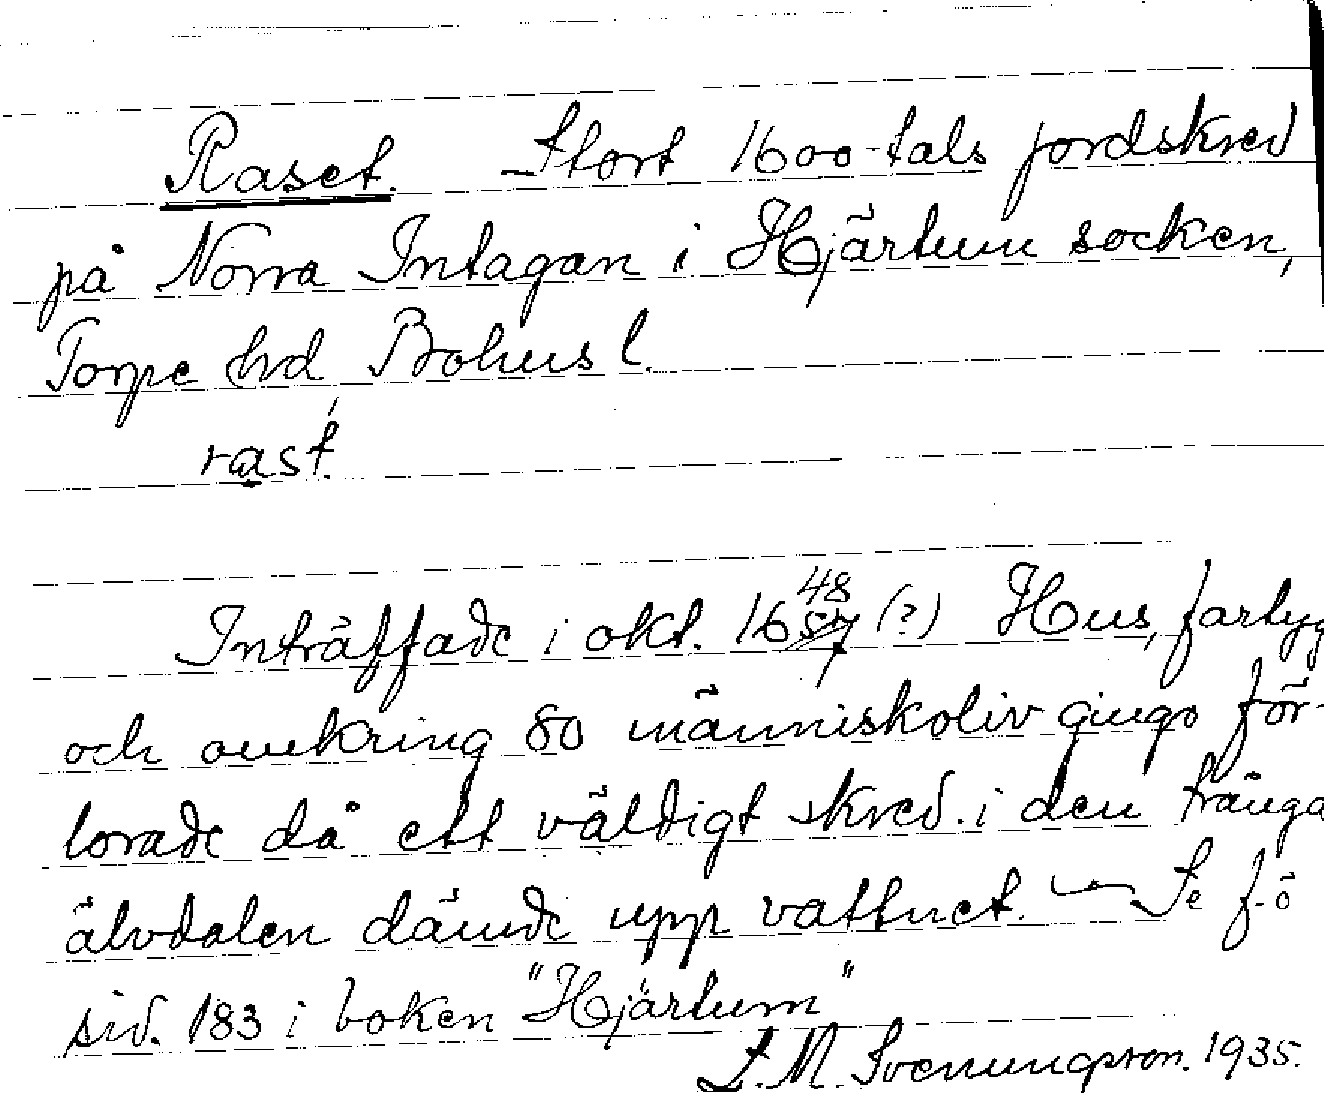 Raset. Stort 1600-tals jordskred
på Norra Intagan i Hjärtum socken,
Torpe hrd, Bohusl.
rast.
Inträffade i okt. 1657 48 (?) Hus, fartyg
och omkring 80 människoliv gingo för-
lorade då ett väldigt skred i den trånga
älvdalen dämde upp vattnet. — Se f.ö
sid. 183 i boken "Hjärtum"
S. M. Svenungsson. 1935.